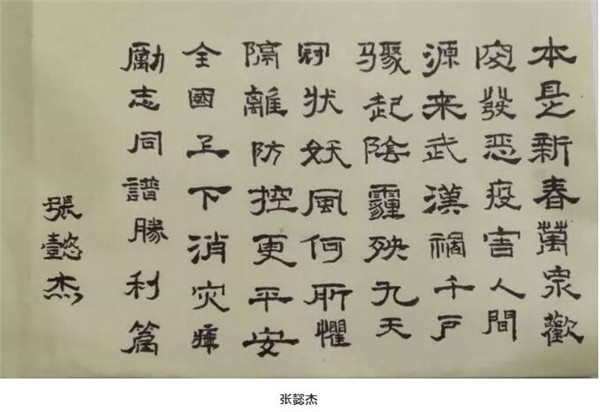 本是新春萬家歡
突發恶疫害人間
源来武漢禍千戸
驟起陰霾殃九天
冠状妖風何所懼
隔離防控更平安
全國上下消灾
勵志同譜勝利篇
張懿杰
张懿杰